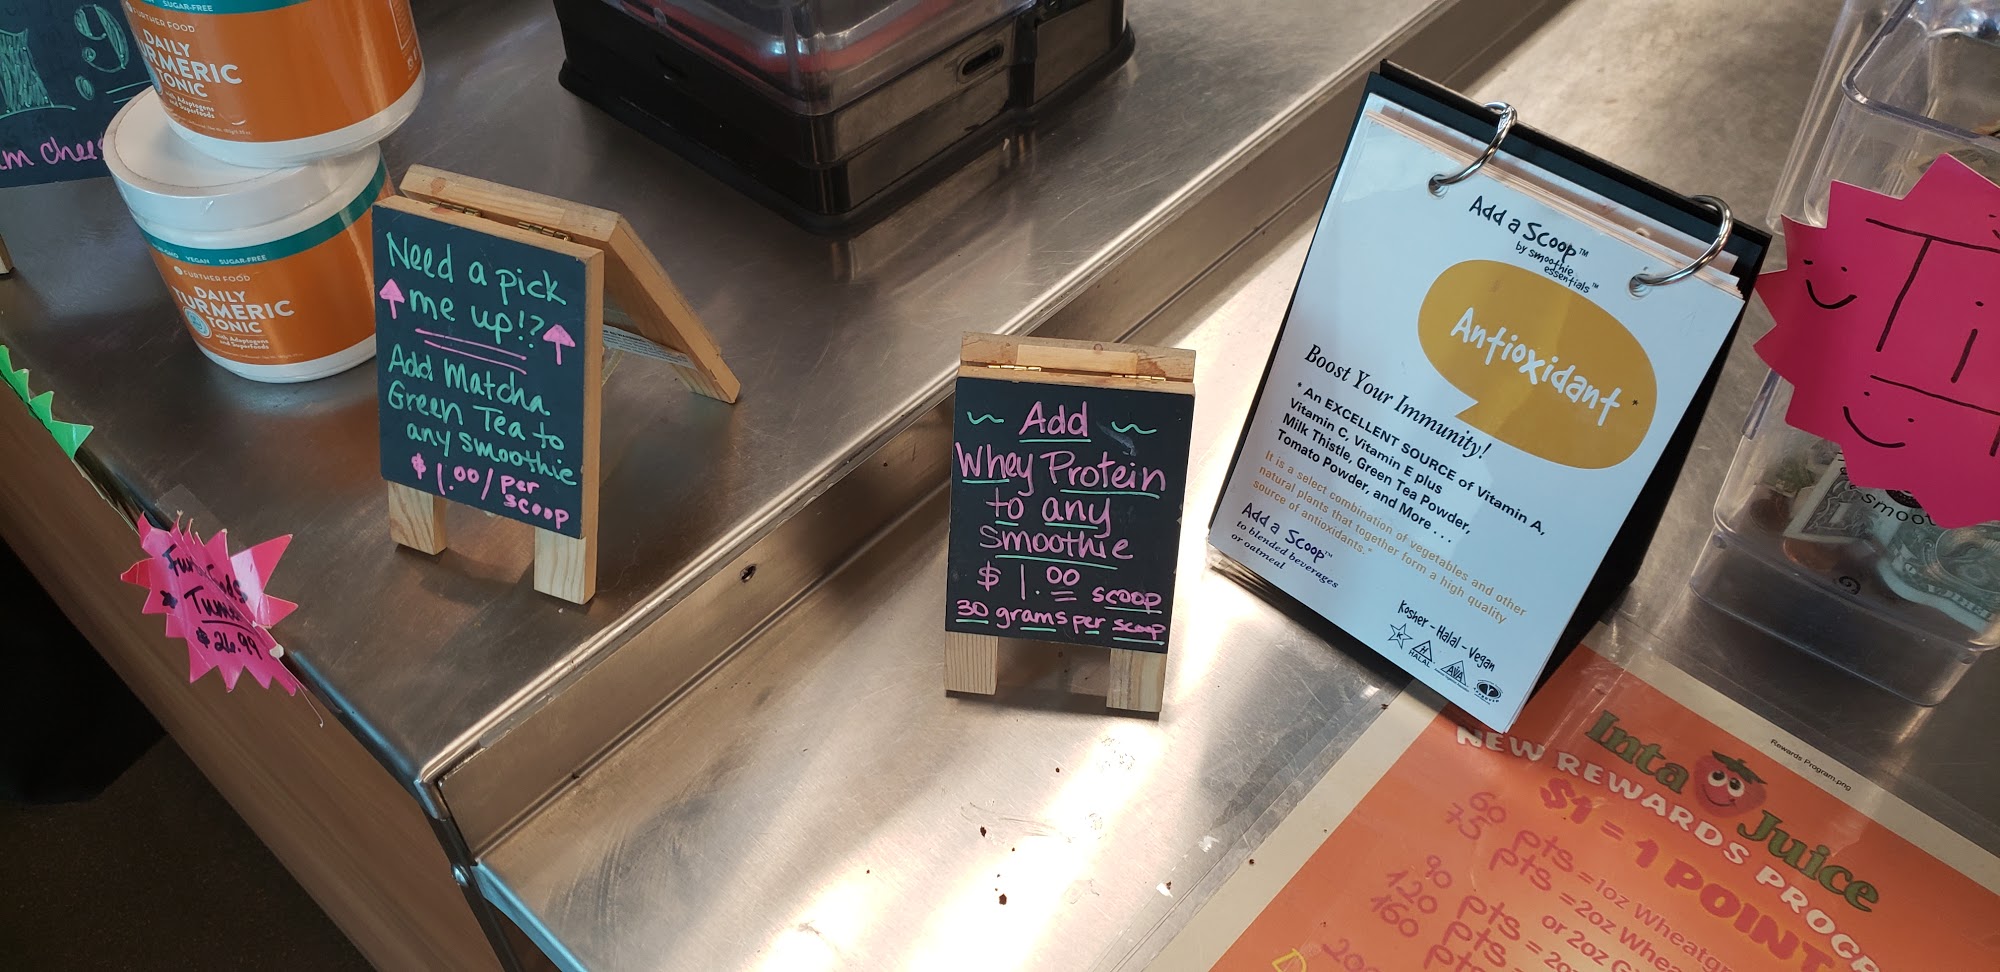 SUGAR-FREE
FURTHER FOOD
DAILY
TURMERIC
TONIC
with Adaptogens
and Superfoods
VEGAN SUGAR-FREE
FURTHER FOOD
DAILY
TURMERIC
TONIC
with Adaptogens
and Superfoods
Need a pick
me up!?
Add Matcha
Green Tea to
any smoothie
$1.00/per
scoop
$26.99
Add
Whey Protein
to any
Smoothie
$1.00 scoop
30 grams per scoop
Add a Scoop™
by smoothie
essentials™
Antioxidant*
Boost Your Immunity!
*An EXCELLENT SOURCE of Vitamin A,
Vitamin C, Vitamin E, plus
Milk Thistle, Green Tea Powder,
Tomato Powder, and More ...
It is a select combination of vegetables and other
natural plants that together form a high quality
source of antioxidants.*
Add a Scoop™
to blended beverages
or oatmeal
Kosher - Halal - Vegan
K
H
HALAL
AVA
V
Rewards Program.png
Inta Juice
NEW REWARDS
$1 = 1 POINT
60 pts = 1oz
75 pts = 2oz
90 pts or 2oz
120 pts
160